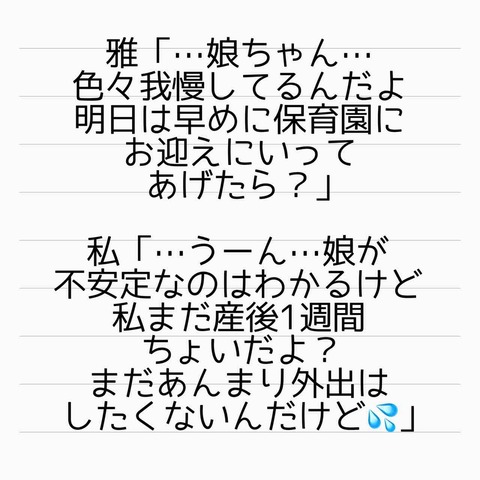 雅「…娘ちゃん…
色々我慢してるんだよ
明日は早めに保育園に
お迎えにいって
あげたら？」
私「…うーん…娘が
不安定なのはわかるけど
私まだ産後1週間
ちょいだよ？
まだあんまり外出は
したくないんだけど💦」